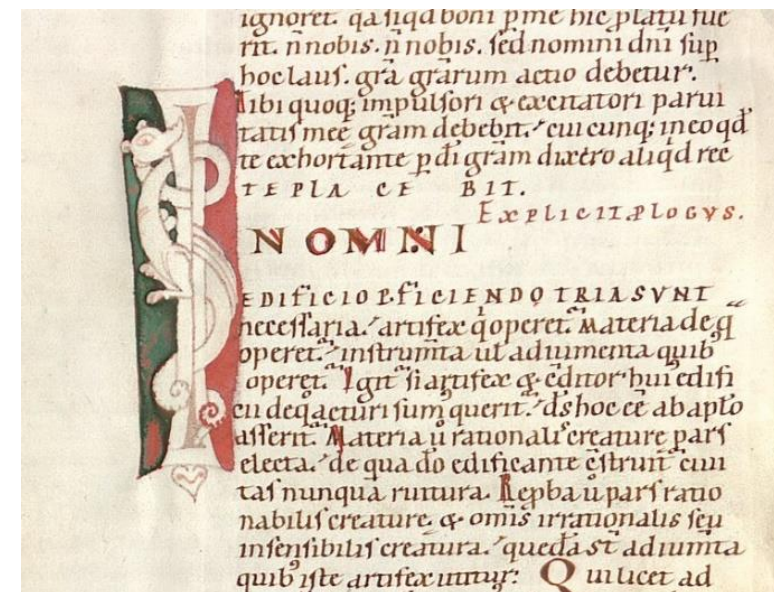 ignoret. qa siqd boni p me hic platū fue
rit. ñ nobis. ñ nobis. sed nomini dñi sup
hoc laus. gr̄a gr̄arum actio debetur.
Tibi quoq; impulsori & excitatori parui
tatis meę gr̄am debebit. cui cunq; in eo qd
te exhortante p di gr̄am dixero aliqd rec
TE PLA CE BIT.
EXPLICIT PLOGVS.
IN OMNI
EDIFICIO PFICIENDO TRIA SVNT
necessaria. artifex q̇ operet. Materia de q̄
operet. instrum̄ta ul adiumenta quib
operet. Igit si artifex & c̄ditor hui edifi
cii de q̇ acturi sum querit. d̄s hoc ēē ab aplo
asserit. Materia ū rationalis creature pars
electa. de qua do edificante c̄struit ciui
tas nunquā ruitura. Repba ū pars ratio
nabilis creature. & omīs irrationalis seu
insensibilis creatura. quedā st̄ adium̄ta
quib iste artifex utitur. Qui licet ad